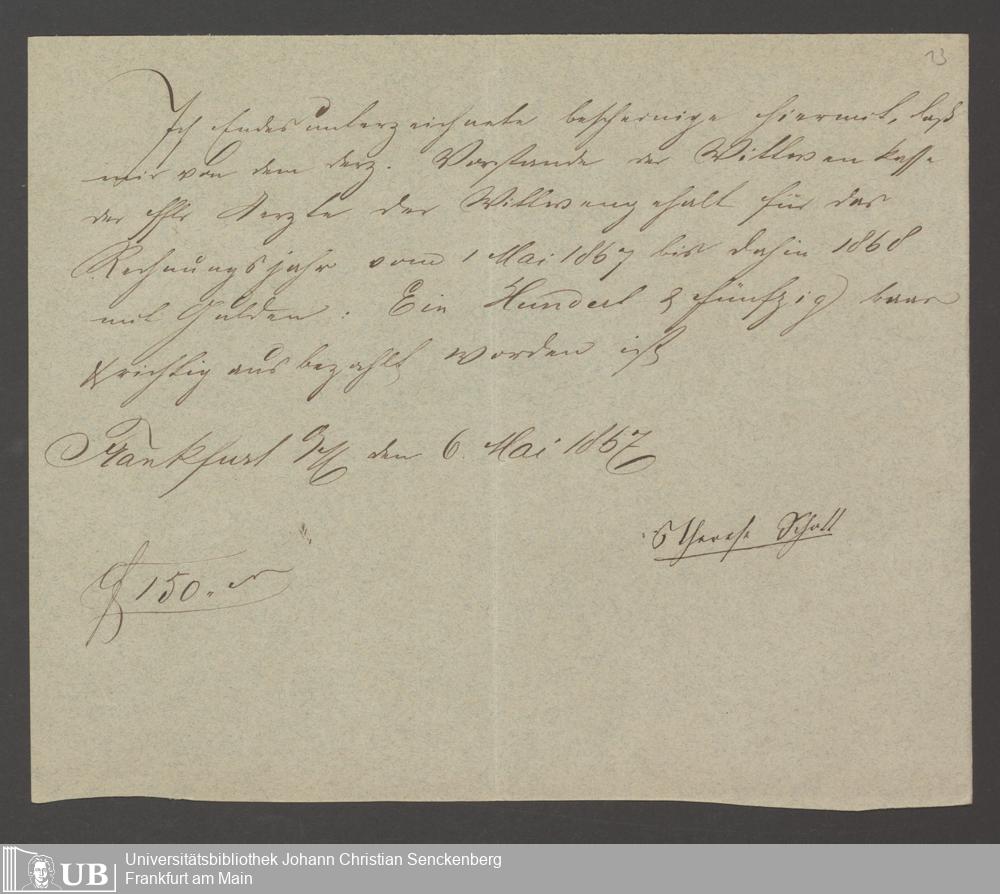 13
Ich Endesunterzeichnete bescheinige hiermit, daß
mir von dem derz. Vorstande der Wittwenkasse
der Aerzte der Wittwengehalt für das
Rechnungsjahr vom 1 Mai 1867 bis dahin 1868
mit Gulden: Ein Hundert & fünfzig baar
& richtig ausbezahlt worden ist
Frankfurt a/M den 6. Mai 1867
Therese Schott
f 150. „
UB
Universitätsbibliothek Johann Christian Senckenberg
Frankfurt am Main